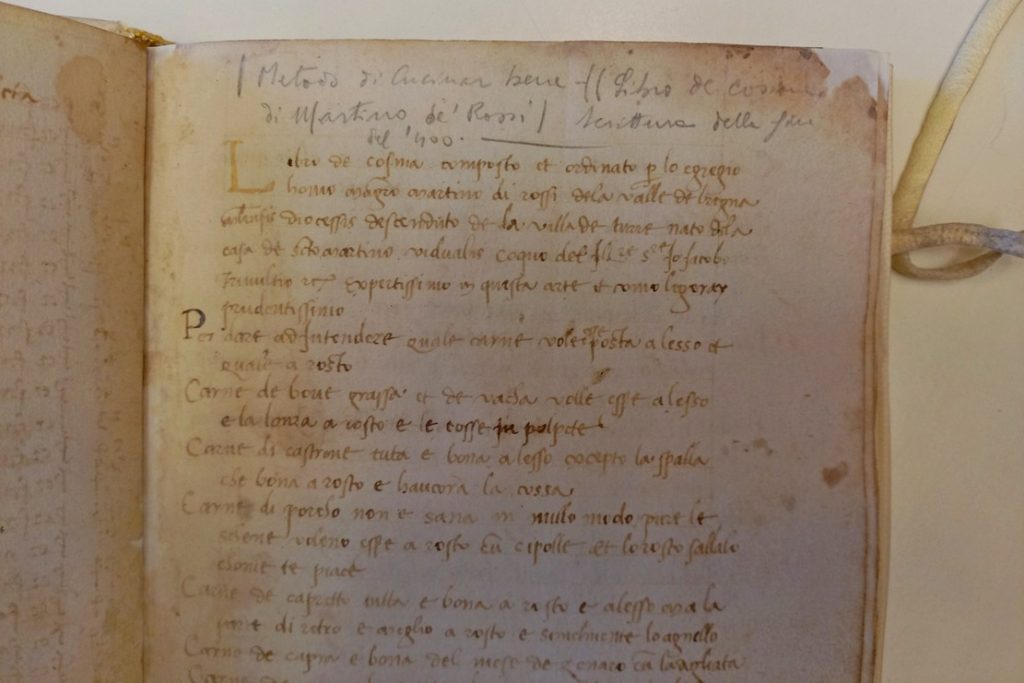 Metodo di Cucinar bene - (Libro de cosina
di Martino de' Rossi) Scrittura della fine
del '400.
Libro de cosina composto et ordinato p lo egregio
homo magro martino di rossi dela valle de bregna
diocessis descenduto de la villa de turre nato dela
casa de Scto martino vidualis coquo del Ill. re S. re Jo Jacobo
Trivultio expertissimo in questa arte et como ligeray
prudentissimo
Per dare ad Intendere quale carne vole posta a lesso et
quale a rosto
Carne de boue grassa et de vacha volle esse a lesso
e la lonza a rosto e le cosse in polpete
Carne di castrone tuta e bona a lesso excepto la spalla
che bona a rosto e hancora la cossa
Carne di porcho non e sana in nullo modo pure le
schene voleno esse a rosto cū cipolle et lo resto sallalo
chome te piace
Carne de capretto tutta e bona a rosto e alesso ma la
parte di retro e meglio a rosto e similmente lo agnello
Carne de capra e bona del mese de genaro cū la agliata